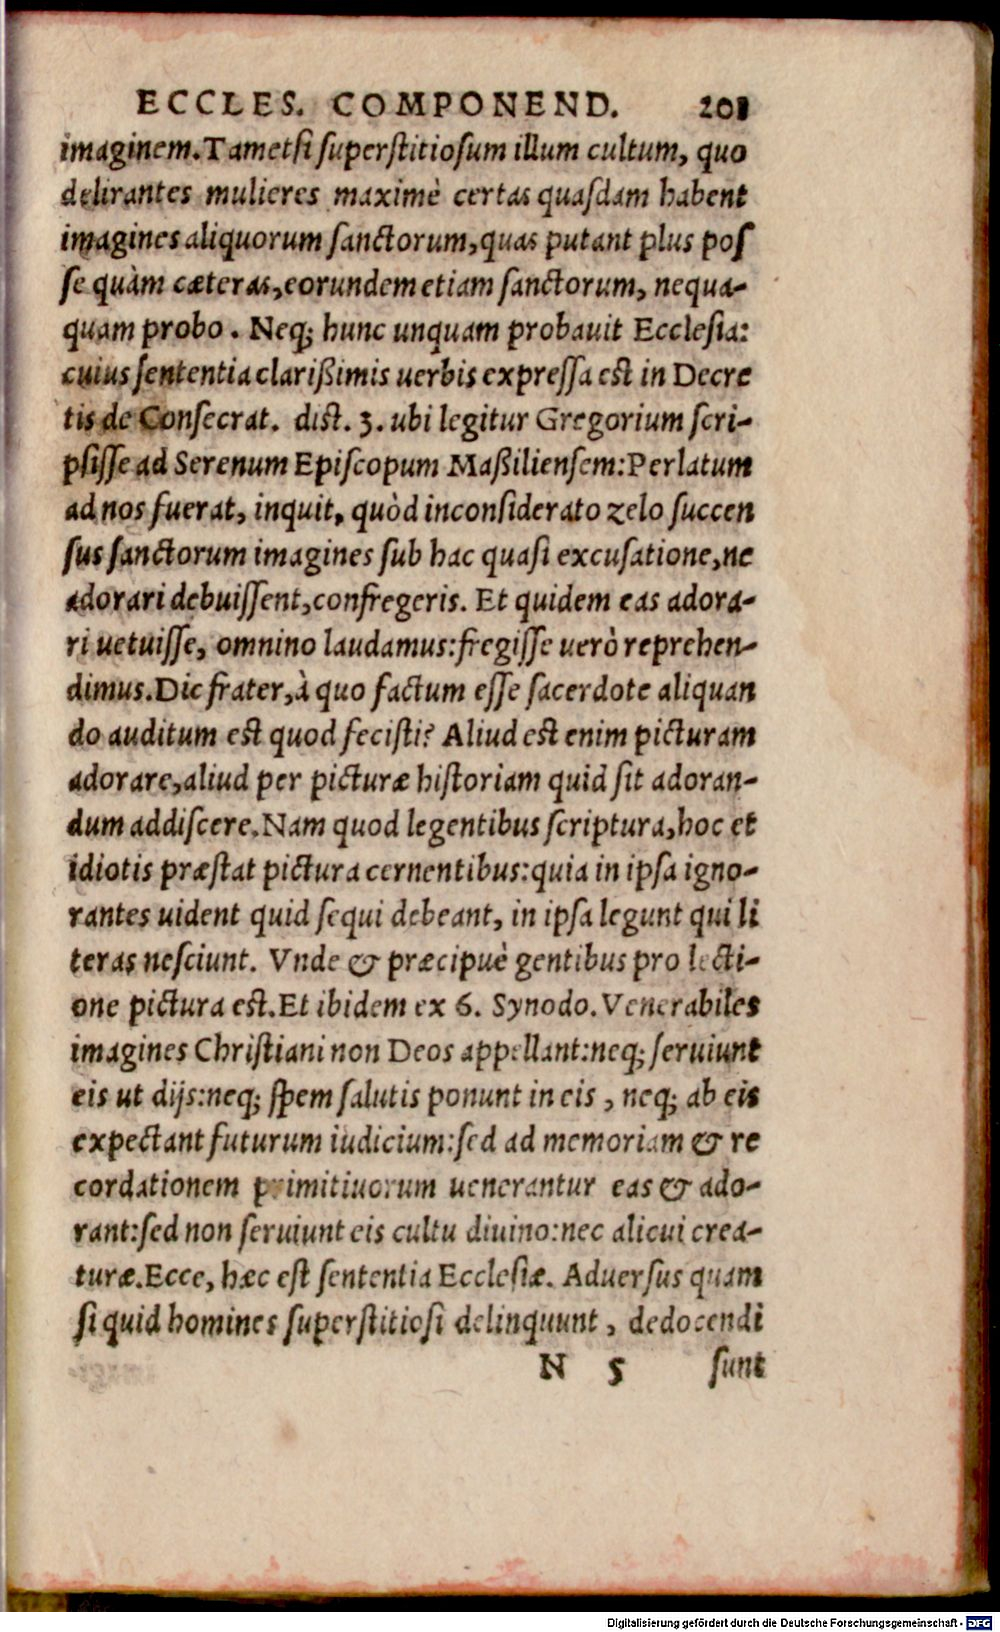 ECCLES. COMPONEND. 201
imaginem. Tametsi superstitiosum illum cultum, quo
delirantes mulieres maximè certas quasdam habent
imagines aliquorum sanctorum, quas putant plus pos
se quàm cæteras, eorundem etiam sanctorum, nequa-
quam probo. Neq; hunc unquam probauit Ecclesia:
cuius sententia clarißimis uerbis expressa est in Decre
tis de Consecrat. dist. 3. ubi legitur Gregorium scri-
psisse ad Serenum Episcopum Maßiliensem: Perlatum
ad nos fuerat, inquit, quòd inconsiderato zelo succen
sus sanctorum imagines sub hac quasi excusatione, ne
adorari debuissent, confregeris. Et quidem eas adora-
ri uetuisse, omnino laudamus: fregisse uerò reprehen-
dimus. Dic frater, à quo factum esse sacerdote aliquan
do auditum est quod fecisti? Aliud est enim picturam
adorare, aliud per picturæ historiam quid sit adoran-
dum addiscere. Nam quod legentibus scriptura, hoc et
idiotis præstat pictura cernentibus: quia in ipsa igno-
rantes uident quid sequi debeant, in ipsa legunt qui li
teras nesciunt. Vnde & præcipuè gentibus pro lecti-
one pictura est. Et ibidem ex 6. Synodo. Venerabiles
imagines Christiani non Deos appellant: neq; seruiunt
eis ut dijs: neq; spem salutis ponunt in eis, neq; ab eis
expectant futurum iudicium: sed ad memoriam & re
cordationem primitiuorum uenerantur eas & ado-
rant: sed non seruiunt eis cultu diuino: nec alicui crea-
turæ. Ecce, hæc est sententia Ecclesiæ. Aduersus quam
si quid homines superstitiosi delinquunt, dedocendi
N 5 sunt
Digitalisierung gefördert durch die Deutsche Forschungsgemeinschaft - DFG